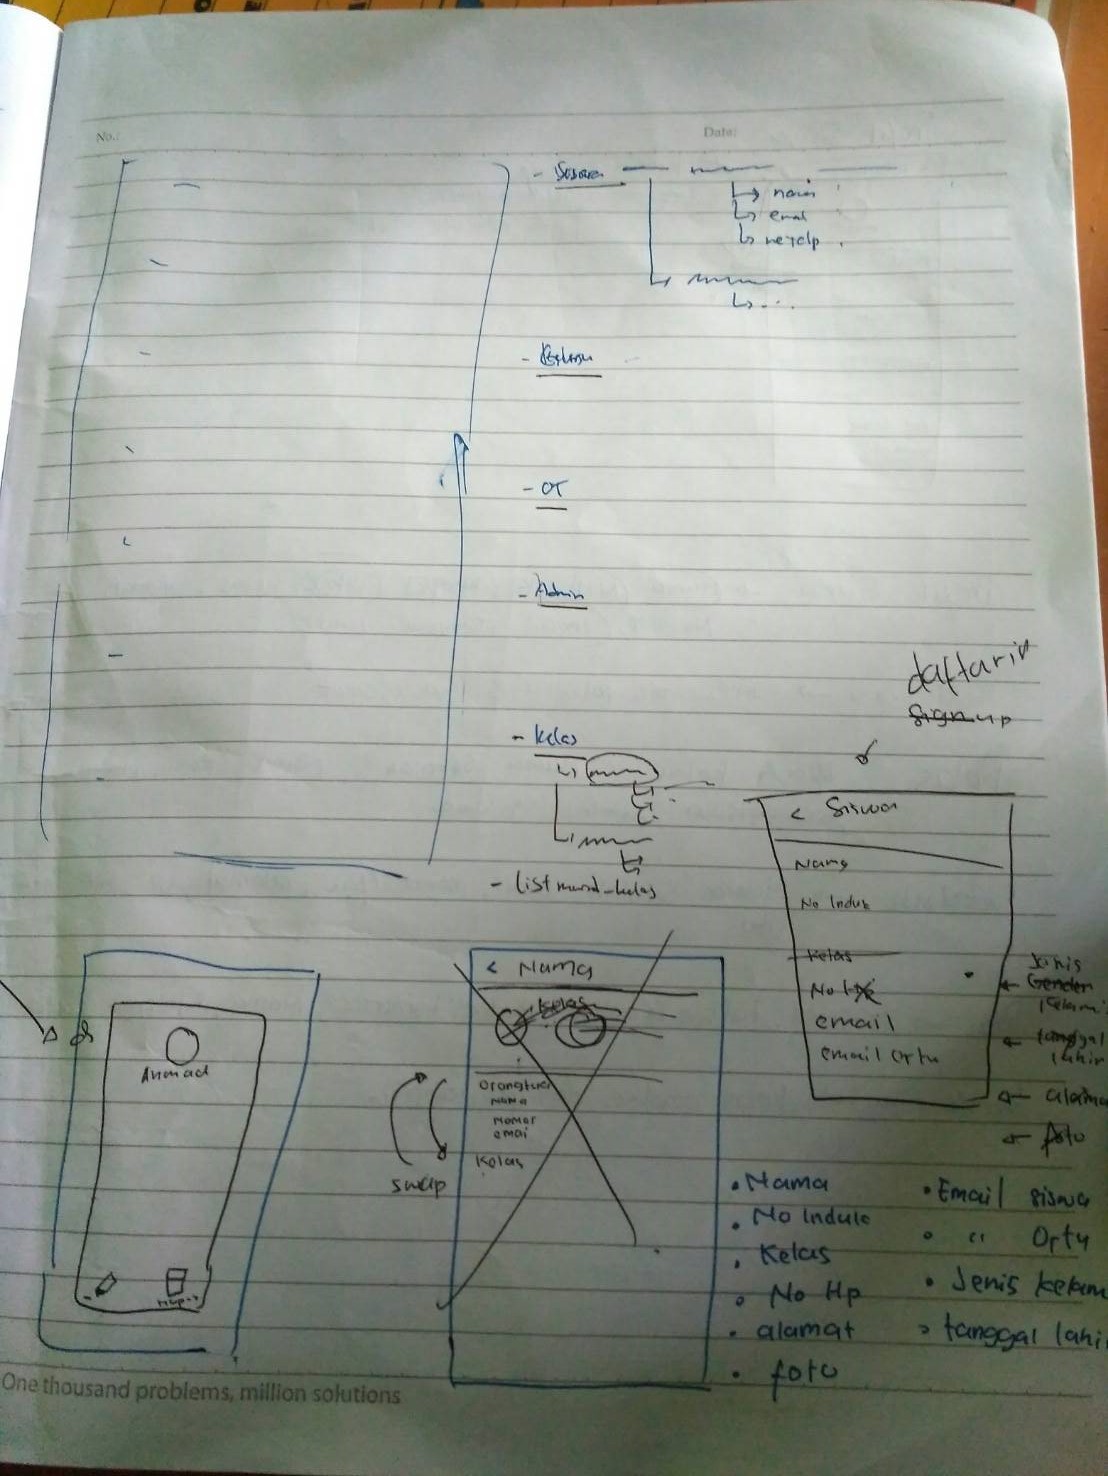 No.:
Date:
- Siswa
nama
email
no telp
- OT
- Admin
- Kelas
- list murid_kelas
daftarin
Sign up
< Siswa
Nama
No Induk
Kelas
No
email
email ortu
Jenis
Gender
Kelami
tanggal
lahir
alama
foto
Ahmad
< Nama
Kelas
Orangtua
Nama
Nomor
emai
Kelas
swap
• Nama
• No Induk
• Kelas
• No Hp
• alamat
• foto
• Email siswa
• " Ortu
• Jenis kelam
tanggal lahi
One thousand problems, million solutions